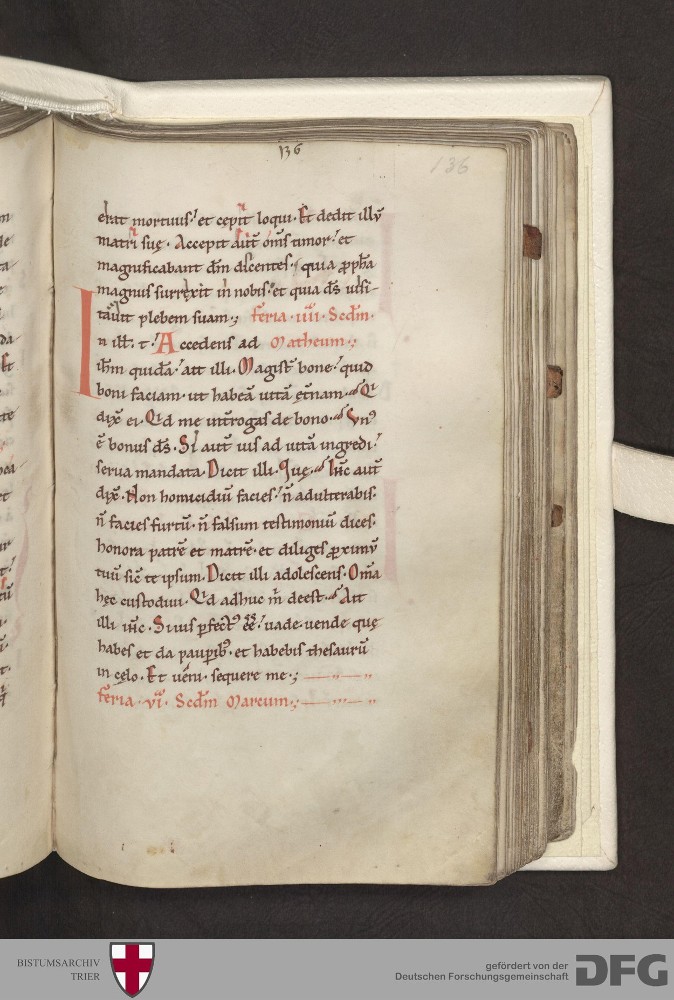 136
136
erat mortuus. et cępit loqui. Et dedit illū
matri suę. Accepit aūt om̄s timor. et
magnificabant dm̄ dicentes. quia ꝓpha
magnus surrexit in nobis. et quia ds̄ uisi-
tauit plebem suam. feria iiii. Scdm̄
n ill. t. Accedens ad Matheum.
ihm̄ quidā. ait illi. Magist̄ bone. quid
boni faciam. ut habeā uitā ęt̄nam. Qi
dix̄ ei. Qid me int̄rogas de bono. Vnꝰ
ē bonus ds̄. Si aut̄ uis ad uitā ingredi.
serua mandata. Dicit illi. Quę. Ihc̄ aut̄
dix̄. Non homicidiū facies. n̄ adult̄rabis.
n̄ facies furtū. n̄ falsum testimoniū dices.
honora patrē et matrē. et diliges ꝓximū
tuū sic̄ te ipsum. Dicit illi adolescens. Om̄a
hęc custodiui. Qid adhuc m̄ deest. Ait
illi ihc̄. Si uis ꝑfectꝰ eē. uade uende quę
habes et da pauꝑibꝰ. et habebis thesaurū
in cęlo. Et ueni. sequere me.
feria vi. Scdm̄ Marcum.
BISTUMSARCHIV
TRIER
gefördert von der
Deutschen Forschungsgemeinschaft
DFG